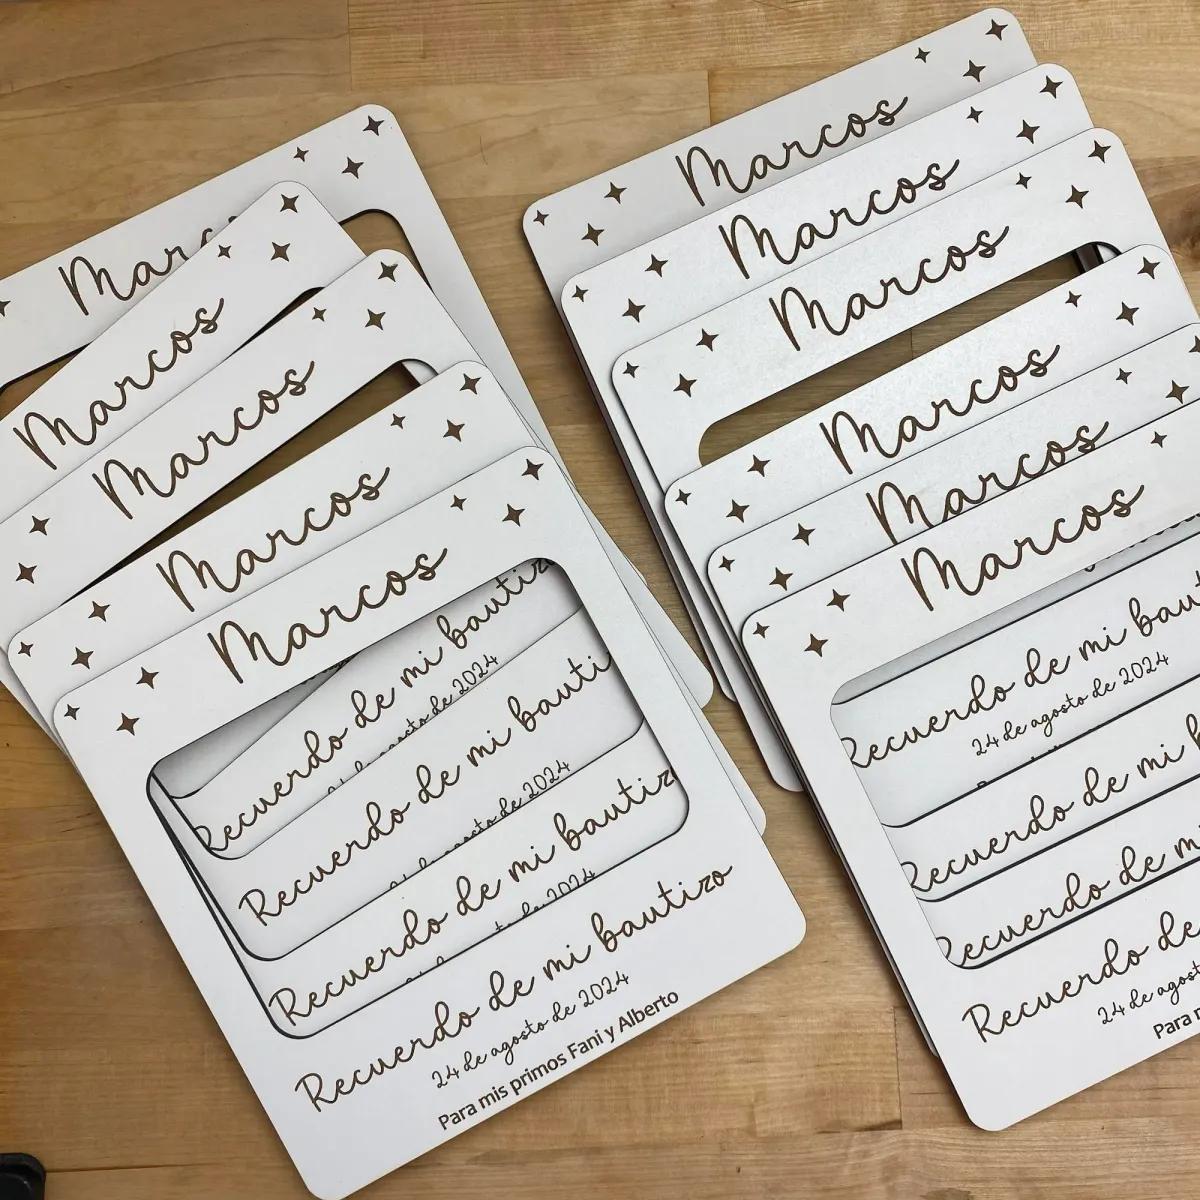 Marcos
Marcos
Marcos
Marcos
Marcos
Recuerdo de mi bautizo
24 de agosto de 2024
Recuerdo de mi bautizo
24 de agosto de 2024
Recuerdo de mi bautizo
de 2024
Recuerdo de mi bautizo
24 de agosto de 2024
Para mis primos Fani y Alberto
Marcos
Marcos
Marcos
Marcos
Marcos
Marcos
Recuerdo de mi
24 de agosto de 2024
Recuerdo de mi
Recuerdo de mi
Recuerdo de
24 de
Para